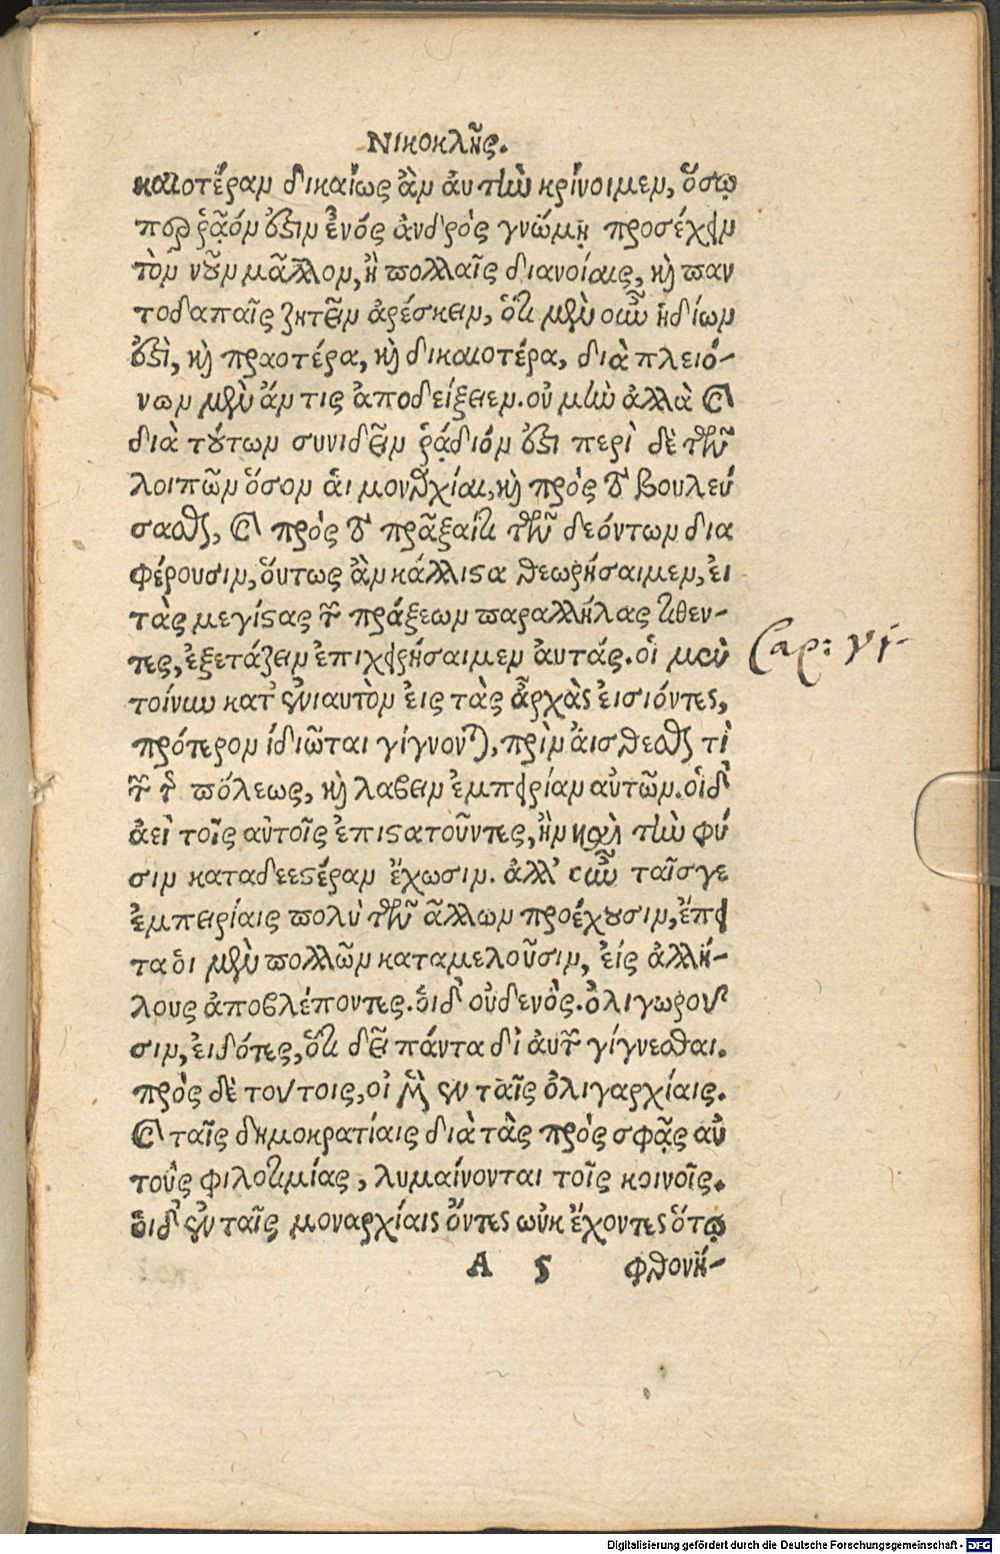 Νικοκλῆς.
καιοτέραν δικαίως ἂν ἀυτὴν κρίνοιμεν, ὅσῳ
περ ῥᾷόν ἐστιν ἑνός ἀνδρὸς γνώμῃ προσέχειν
τὸν νοῦν μᾶλλον, ἢ πολλαῖς διανοίαις, καὶ παν
τοδαπαῖς ζητεῖν ἀρέσκειν, ὅτι μὲν οὖν ἡδίων
ἐστὶ, καὶ πραοτέρα, καὶ δικαιοτέρα, διὰ πλειό-
νων μὲν ἄν τις ἀποδείξειεν. οὐ μὴν ἀλλὰ καὶ
διὰ τούτων συνιδεῖν ῥᾴδιόν ἐστι περὶ δὲ τῶν
λοιπῶν ὅσον ἁι μοναρχίαι, καὶ πρὸς τὸ βουλεύ
σασθαι, καὶ πρὸς τὸ πρᾶξαί τι τῶν δεόντων δια
φέρουσιν, ὅυτως ἂν κάλλιστα θεωρήσαιμεν, ἐι
τὰς μεγίστας τῶν πράξεων παραλλήλας τιθεν-
τες, ἐξετάζειν ἐπιχειρήσαιμεν ἀυτάς. οἱ μὲν
τοίνυν κατ' ἐνιαυτὸν ἐις τὰς ἀρχὰς ἐισιόντες,
πρότερον ἰδιῶται γίγνονται, πρὶν ἀισθεσθαι τὶ
τῶν τῆς πόλεως, καὶ λαβειν ἐμπειρίαν αὐτῶν. οἱδ'
ἀεὶ τοῖς αὐτοῖς ἐπιστατοῦντες, ἢν καὶ τὴν φύ
σιν καταδεεστέραν ἔχωσιν. ἀλλ' οὖν ταῖσγε
ἐμπειρίαις πολὺ τῶν ἄλλων προέχουσιν, ἔπει
τα ὁι μὲν πολλῶν καταμελοῦσιν, ἐίς ἀλλή-
λους ἀποβλέποντες. ὁιδ' οὐδενὸς. ὀλιγωροῦ
σιν, ἐιδότες, ὅτι δεῖ πάντα δἰ ἀυτῶν γίγνεσθαι.
πρὸς δὲ τούτοις, οἱ μὲν ἐν ταῖς ὀλιγαρχίαις.
καὶ ταῖς δημοκρατίαις διὰ τὰς πρὸς σφᾷς αὑ
τοὺς φιλοτιμίας, λυμαίνονται τοῖς κοινοῖς.
ὁιδ' ἐν ταῖς μοναρχίαις ὄντες οὐκ ἔχοντες ὅτῳ
A 5 φθονή-
Cap: vj.
Digitalisierung gefördert durch die Deutsche Forschungsgemeinschaft - DFG